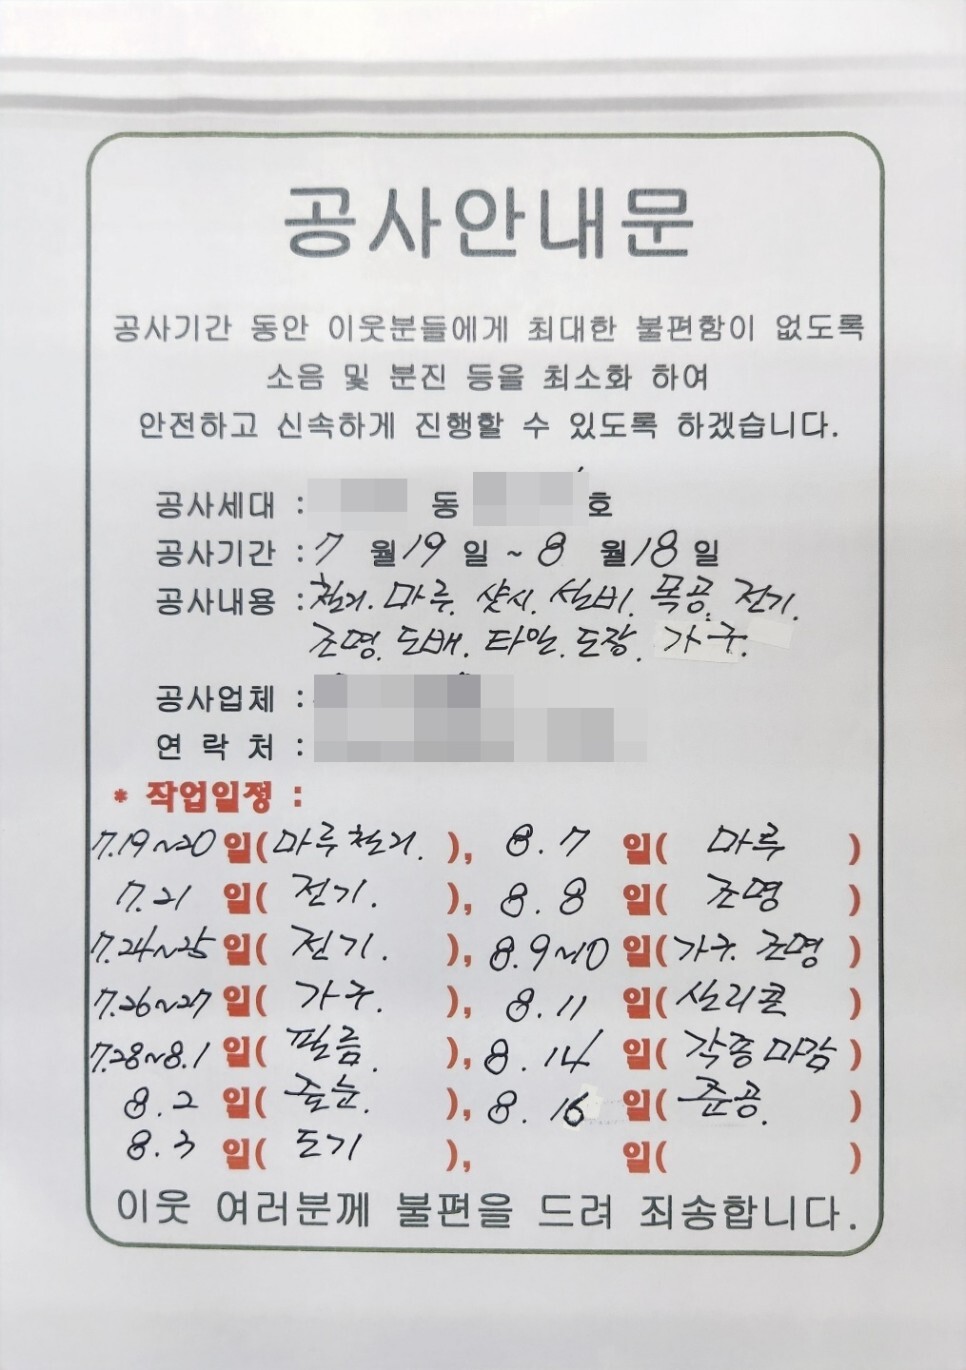 공사안내문
공사기간 동안 이웃분들에게 최대한 불편함이 없도록
소음 및 분진 등을 최소화 하여
안전하고 신속하게 진행할 수 있도록 하겠습니다.
공사세대 : 동 호
공사기간 : 7 월 19 일 ~ 8 월 18 일
공사내용 : 철거. 마루. 샷시. 설비. 목공. 전기.
조명. 도배. 타일. 도장. 가구.
공사업체 :
연 락 처 :
* 작업일정 :
7.19~20 일( 마루 철거. ), 8. 7 일( 마루 )
7.21 일( 전기. ), 8. 8 일( 조명 )
7.24~25 일( 전기. ), 8. 9~10 일( 가구. 조명 )
7.26~27 일( 가구. ), 8. 11 일( 실리콘 )
7.28~8.1 일( 필름. ), 8. 14 일( 각종 마감 )
8.2 일( 줄눈. ), 8. 16 일( 준공. )
8.3 일( 도기 ), 일( )
이웃 여러분께 불편을 드려 죄송합니다.